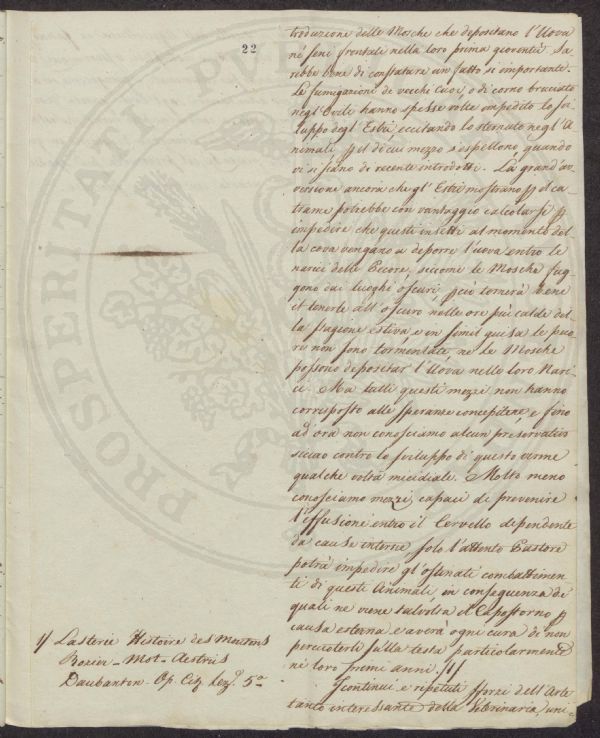 22
troduzione delle Mosche che depositano l'Uova
né seni frontali nella loro prima gioventù. Sa
rebbe bene di constatare un fatto si importante.
Le fumigazioni di vecchi Cuoi, o di corno bruciato
negl'Ovili hanno spesse volte impedito lo svi
luppo degl'Estri eccitando lo sternuto negl'A
nimali p il di cui mezzo s'espellono, quando
vi si siano di recente introdotti. La grand'av
versione ancora che gl'Estri mostrano p il ca
trame potrebbe con vantaggio calcolarsi p
impedire che questi insetti al momento del
la cova vengano a deporre l'uova entro le
narici delle Pecore, siccome le Mosche fug
gono dai luoghi oscuri p ciò tornerà bene
il tenerle all'oscuro nelle ore più calde del
la stagione estiva e in simil guisa le peco
re non sono tormentate ne le Mosche
possono depositar l'Uova nelle loro Nari
ci. Ma tutti questi mezzi non hanno
corrisposto alle speranze concepitene, e fino
ad'ora non conosciamo alcun preservativo
contro lo sviluppo di questo verme
qualche volta micidiale. Molto meno
conosciamo mezzi capaci di prevenire
l'effusione entro il Cervello dipendente
da cause interne solo l'attento Pastore
potrà impedire gl'ostinati combattimen
ti di questi Animali, in conseguenza de
quali ne viene talvolta il Capostorno p
causa esterna e averà ogni cura di non
percuoterle sulla testa particolarmente
né loro primi anni. /1/
I continui e repetuti sforzi dell'Arte
tanto interessante della Veterinaria, uni-
1/ Lasterie Histoire des Moutons
Mot. Oestrus
Daubanton. Op. Cit. Lez. 5a
PROSPERITATI PVBLICAE